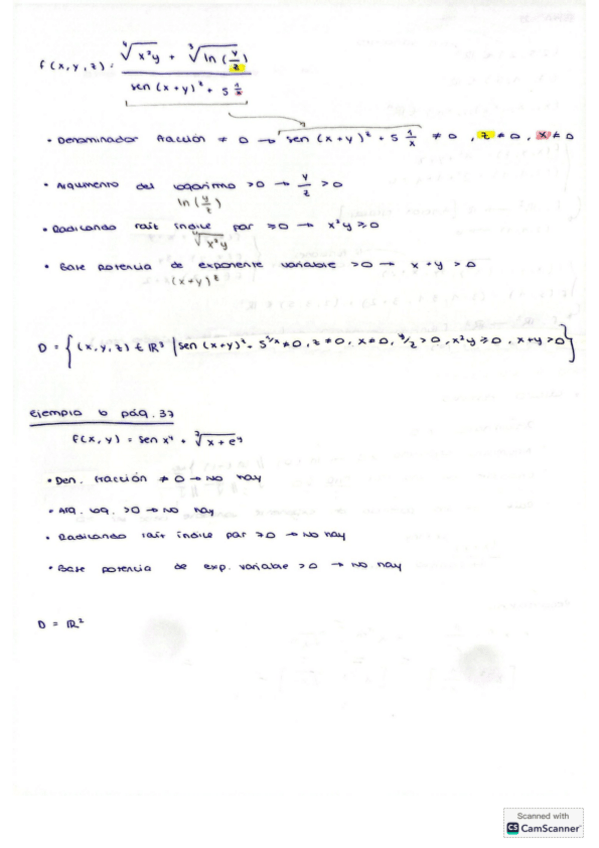 f(x,y,z) = (⁴√(x²y) + ³√(ln(y/z))) / (sen (x+y)^z + 5^(1/x))
• Denominador fracción ≠ 0 → sen (x+y)^z + 5^(1/x) ≠ 0, z ≠ 0, x ≠ 0
• Argumento del logaritmo >0 → y/z > 0
ln(y/z)
• Radicando raíz índice par ≥0 → x²y ≥ 0
⁴√(x²y)
• Base potencia de exponente variable >0 → x + y > 0
(x+y)^z
D = {(x,y,z) ∈ ℝ³ | sen (x+y)^z - 5^(1/x) ≠ 0, z ≠ 0, x ≠ 0, y/z > 0, x²y ≥ 0, x+y > 0}
ejemplo b pág. 37
f(x,y) = sen x⁴ + ³√(x + e^y)
• Den. fracción ≠ 0 → No hay
• Arg. log. >0 → No hay
• Radicando raíz índice par ≥0 → No hay
• Base potencia de exp. variable >0 → No hay
D = ℝ²
Scanned with
CS CamScanner